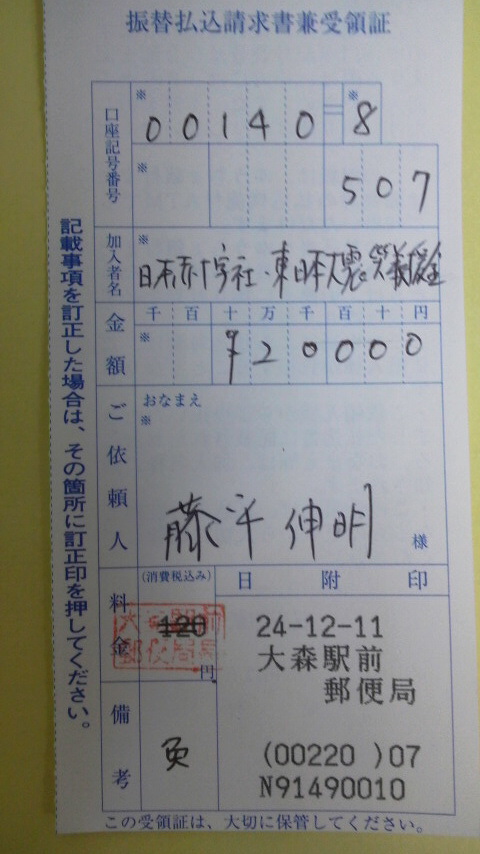 振替払込請求書兼受領証
口座記号番号
※
00140
※
8
※
507
加入者名
※
日本赤十字社・東日本大震災義援金
金額
千 百 十 万 千 百 十 円
※
¥20000
ご依頼人
おなまえ
※
藤平伸明
様
料金
(消費税込み)
120
円
大森駅前
郵便局
日附印
24-12-11
大森駅前
郵便局
(00220 )07
N91490010
備考
免
この受領証は、大切に保管してください。
記載事項を訂正した場合は、その箇所に訂正印を押してください。